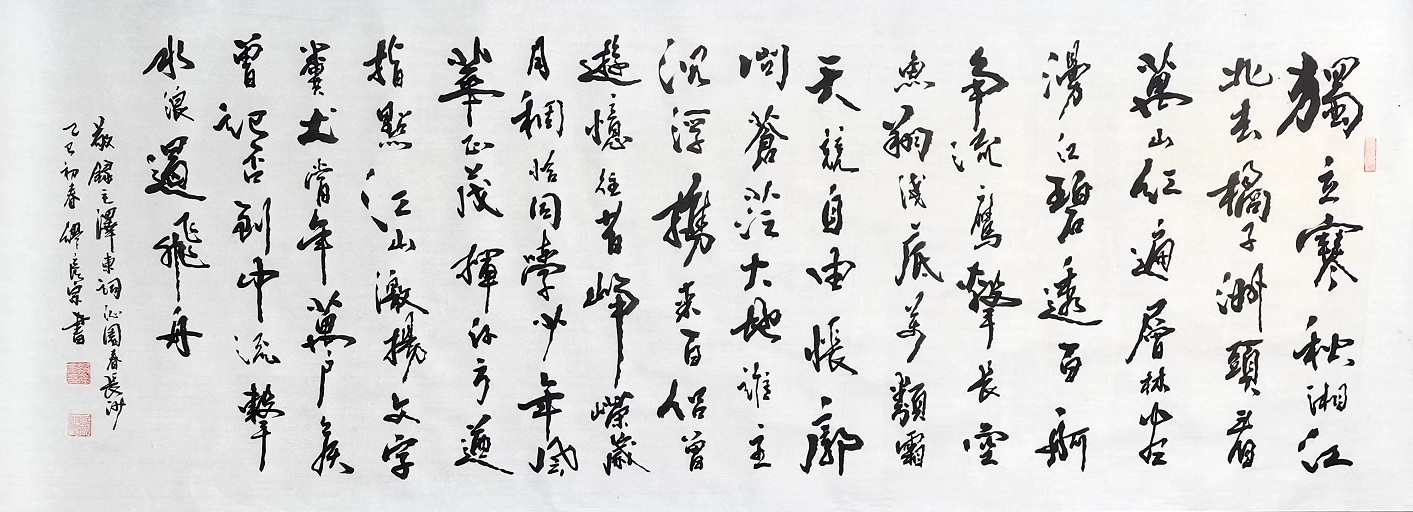 獨立寒秋湘江
北去橘子洲頭看
萬山紅遍層林尽染
漫江碧透百舸
争流鷹擊長空
魚翔淺底萬類霜
天競自由悵廓
問蒼茫大地誰主
沉浮攜来百侣曾
遊憶往昔崢嶸歲
月稠恰同學少年風
華正茂揮斥方遒
指點江山激揚文字
糞土當年萬户侯
曾記否到中流擊
水浪遏飛舟
敬録毛澤東詞沁園春長沙
乙巳初春繆宗書